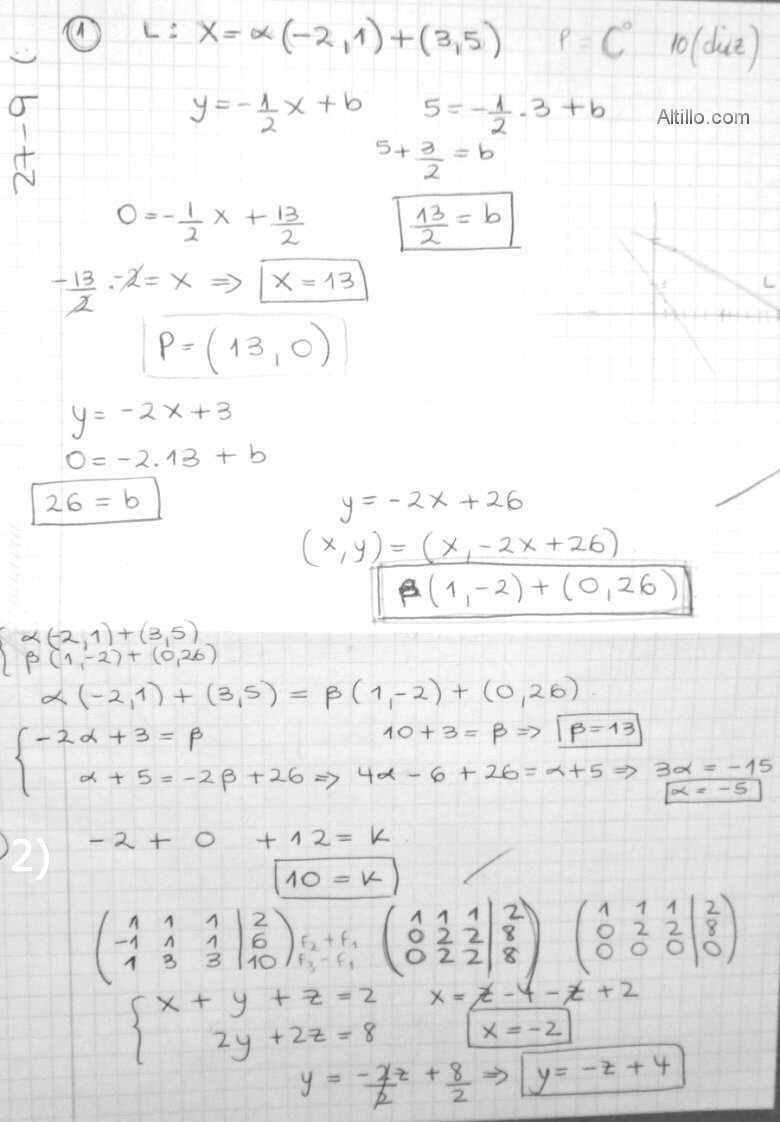 ① L: X = α(-2,1) + (3,5) P = C° 10(diez)
27-9
y = -1/2 x + b 5 = -1/2 . 3 + b
Altillo.com
5 + 3/2 = b
0 = -1/2 x + 13/2 13/2 = b
-13/2 . -2 = x ⇒ x = 13
L
P = (13, 0)
y = -2x + 3
0 = -2.13 + b
26 = b y = -2x + 26
(x, y) = (x, -2x + 26)
β(1,-2) + (0,26)
{ α(-2,1) + (3,5)
β(1,-2) + (0,26)
α(-2,1) + (3,5) = β(1,-2) + (0,26)
{ -2α + 3 = β 10 + 3 = β ⇒ β = 13
α + 5 = -2β + 26 ⇒ 4α - 6 + 26 = α + 5 ⇒ 3α = -15
α = -5
2) -2 + 0 + 12 = k
10 = k
( 1 1 1 | 2 ) ( 1 1 1 | 2 ) ( 1 1 1 | 2 )
( -1 1 1 | 6 ) F2 + F1 ( 0 2 2 | 8 ) ( 0 2 2 | 8 )
( 1 3 3 | 10 ) F3 - F1 ( 0 2 2 | 8 ) ( 0 0 0 | 0 )
{ x + y + z = 2 x = z - 4 - z + 2
2y + 2z = 8 x = -2
y = -2/2 z + 8/2 ⇒ y = -z + 4